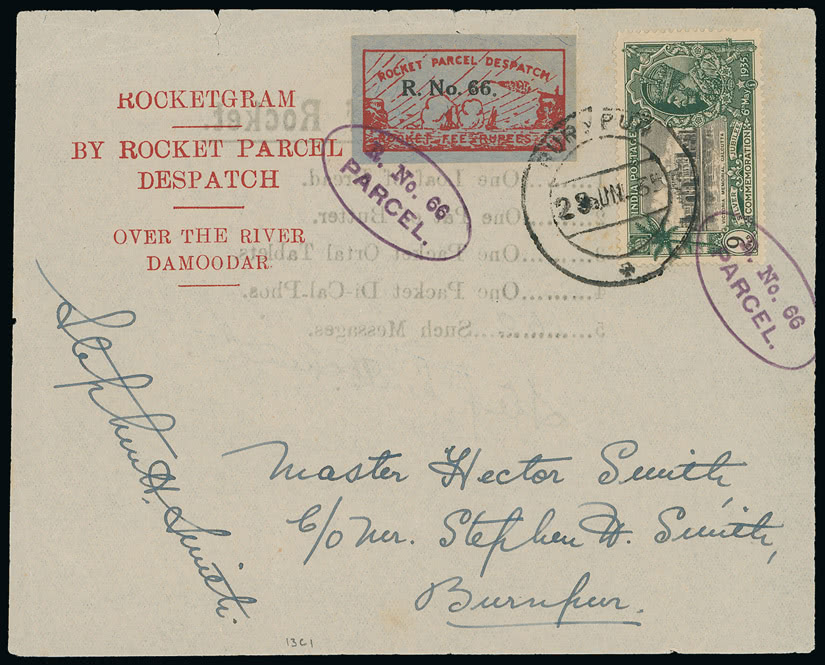 ROCKETGRAM
BY ROCKET PARCEL
DESPATCH
OVER THE RIVER
DAMOODAR
ROCKET PARCEL DESPATCH
R. No. 66.
ROCKET FEE RUPEES
BURNPUR
28 JUN. 35
INDIA POSTAGE
SILVER JUBILEE
COMMEMORATION
6th MAY 1935
VICTORIA MEMORIAL, CALCUTTA
R. No. 66
PARCEL.
R. No. 66
PARCEL.
Rocket.
One Loaf of Bread.
One Pat of Butter.
One Packet Ortal Tablets.
4..........One Packet Di-Cal-Phos.
5..........Such Messages.
Stephen H. Smith.
Master Hector Smith,
C/o Mr. Stephen H. Smith,
Burnpur.
13C1